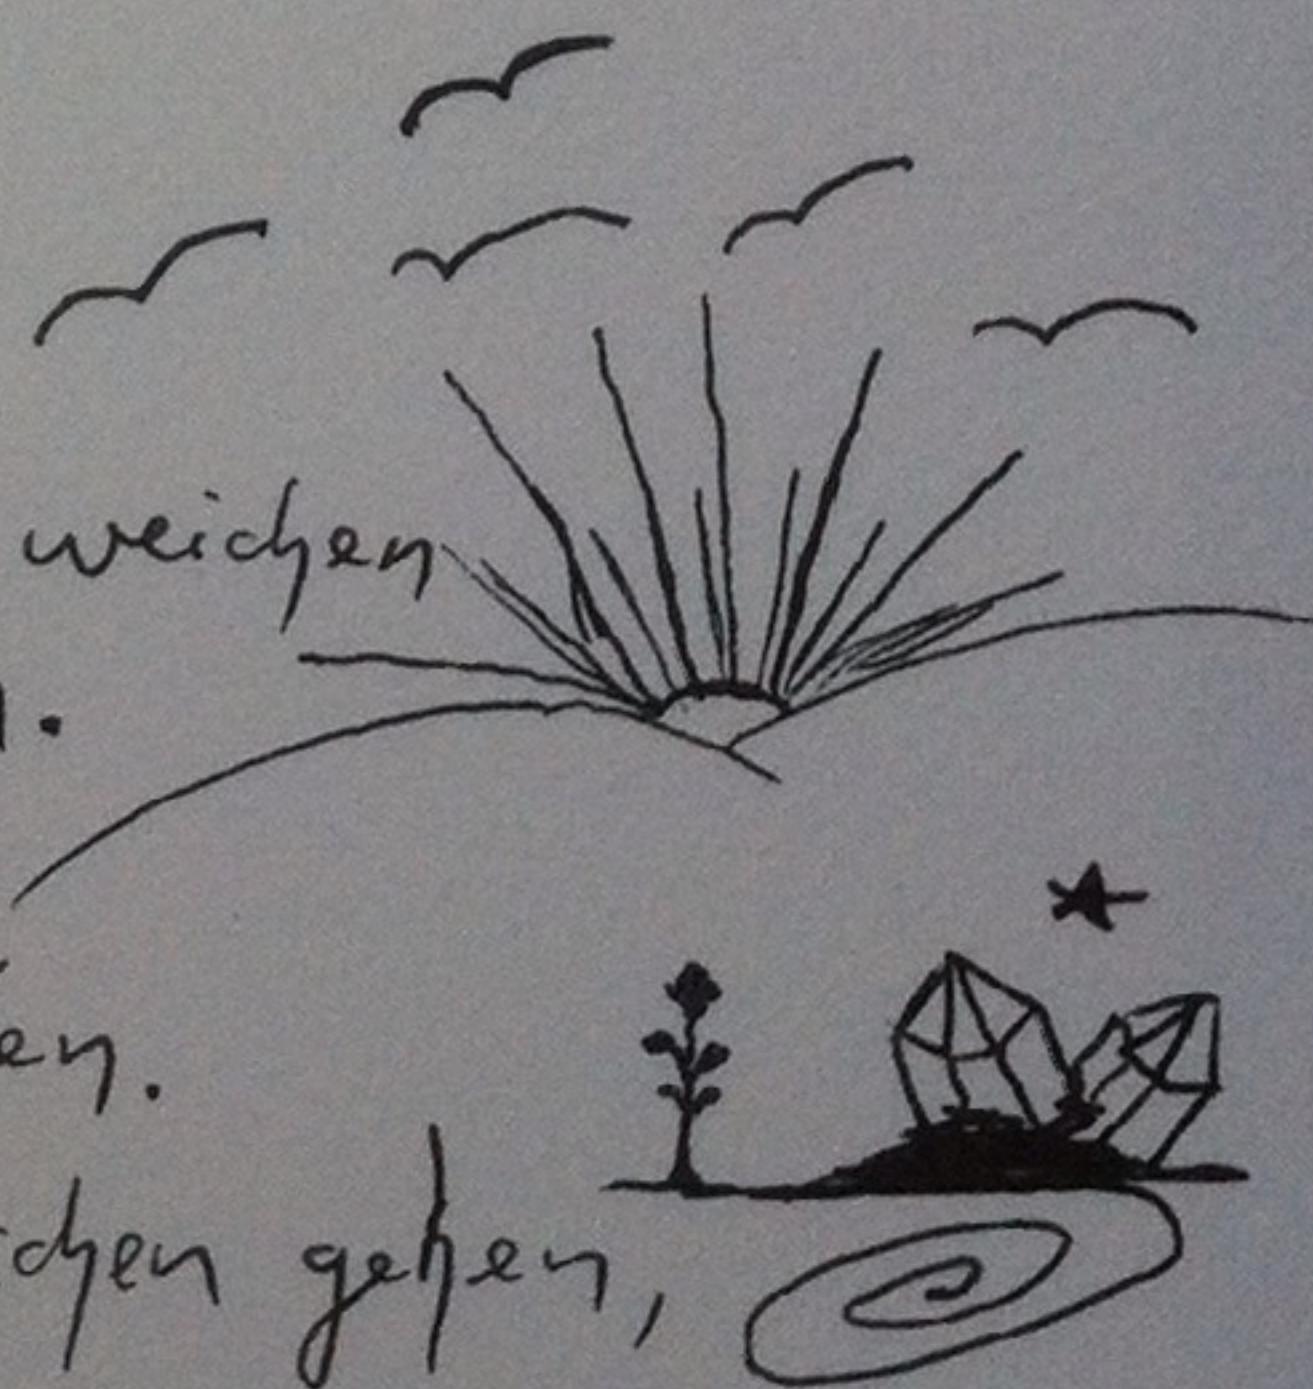 weichen
.
en.
chen gehen,